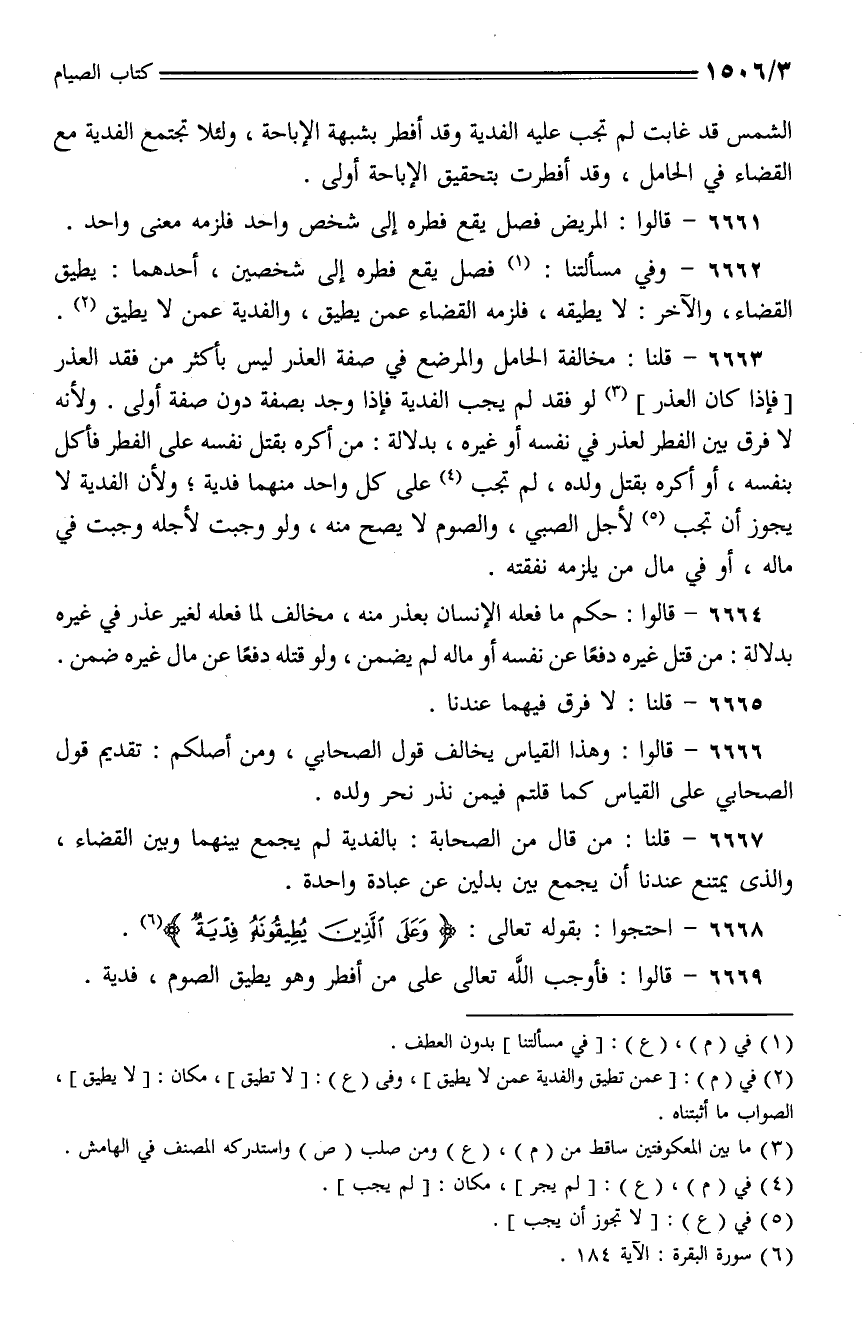 ١٥٠٦/٣ كتاب الصيام
الشمس قد غابت لم تجب عليه الفدية وقد أفطر بشبهة الإباحة ، ولئلا تجتمع الفدية مع
القضاء في الحامل ، وقد أفطرت بتحقيق الإباحة أولى .
٦٦٦١ - قالوا : المريض فصل يقع فطره إلى شخص واحد فلزمه معنى واحد .
٦٦٦٢ - وفي مسألتنا : (١) فصل يقع فطره إلى شخصين ، أحدهما : يطيق
القضاء، والآخر : لا يطيقه ، فلزمه القضاء عمن يطيق ، والفدية عمن لا يطيق (٢) .
٦٦٦٣ - قلنا : مخالفة الحامل والمرضع في صفة العذر ليس بأكثر من فقد العذر
[ فإذا كان العذر ] (٣) لو فقد لم يجب الفدية فإذا وجد بصفة دون صفة أولى . ولأنه
لا فرق بين الفطر لعذر في نفسه أو غيره ، بدلالة : من أكره بقتل نفسه على الفطر فأكل
بنفسه ، أو أكره بقتل ولده ، لم تجب (٤) على كل واحد منهما فدية ؛ ولأن الفدية لا
يجوز أن تجب (٥) لأجل الصبي ، والصوم لا يصح منه ، ولو وجبت لأجله وجبت في
ماله ، أو في مال من يلزمه نفقته .
٦٦٦٤ - قالوا : حكم ما فعله الإنسان بعذر منه ، مخالف لما فعله لغير عذر في غيره
بدلالة : من قتل غيره دفعًا عن نفسه أو ماله لم يضمن ، ولو قتله دفعًا عن مال غيره ضمن .
٦٦٦٥ - قلنا : لا فرق فيهما عندنا .
٦٦٦٦ - قالوا : وهذا القياس يخالف قول الصحابي ، ومن أصلكم : تقديم قول
الصحابي على القياس كما قلتم فيمن نذر نحر ولده .
٦٦٦٧ - قلنا : من قال من الصحابة : بالفدية لم يجمع بينهما وبين القضاء ،
والذى يمتنع عندنا أن يجمع بين بدلين عن عبادة واحدة .
٦٦٦٨ - احتجوا : بقوله تعالى : ﴿ وَعَلَى ٱلَّذِينَ يُطِيقُونَهُ فِدْيَةٌ ﴾(٦) .
٦٦٦٩ - قالوا : فأوجب اللَّه تعالى على من أفطر وهو يطيق الصوم ، فدية .
(١) في ( م ) ، ( ع ) : [ في مسألتنا ] بدون العطف .
(٢) في ( م ) : [ عمن تطيق والفدية عمن لا يطيق ] ، وفى ( ع ) : [ لا تطيق ] ، مكان : [ لا يطيق ] ،
الصواب ما أثبتناه .
(٣) ما بين المعكوفتين ساقط من ( م ) ، ( ع ) ومن صلب ( ص ) واستدركه المصنف في الهامش .
(٤) في ( م ) ، ( ع ) : [ لم يجر ] ، مكان : [ لم يجب ] .
(٥) في ( ع ) : [ لا تجوز أن يجب ] .
(٦) سورة البقرة : الآية ١٨٤ .